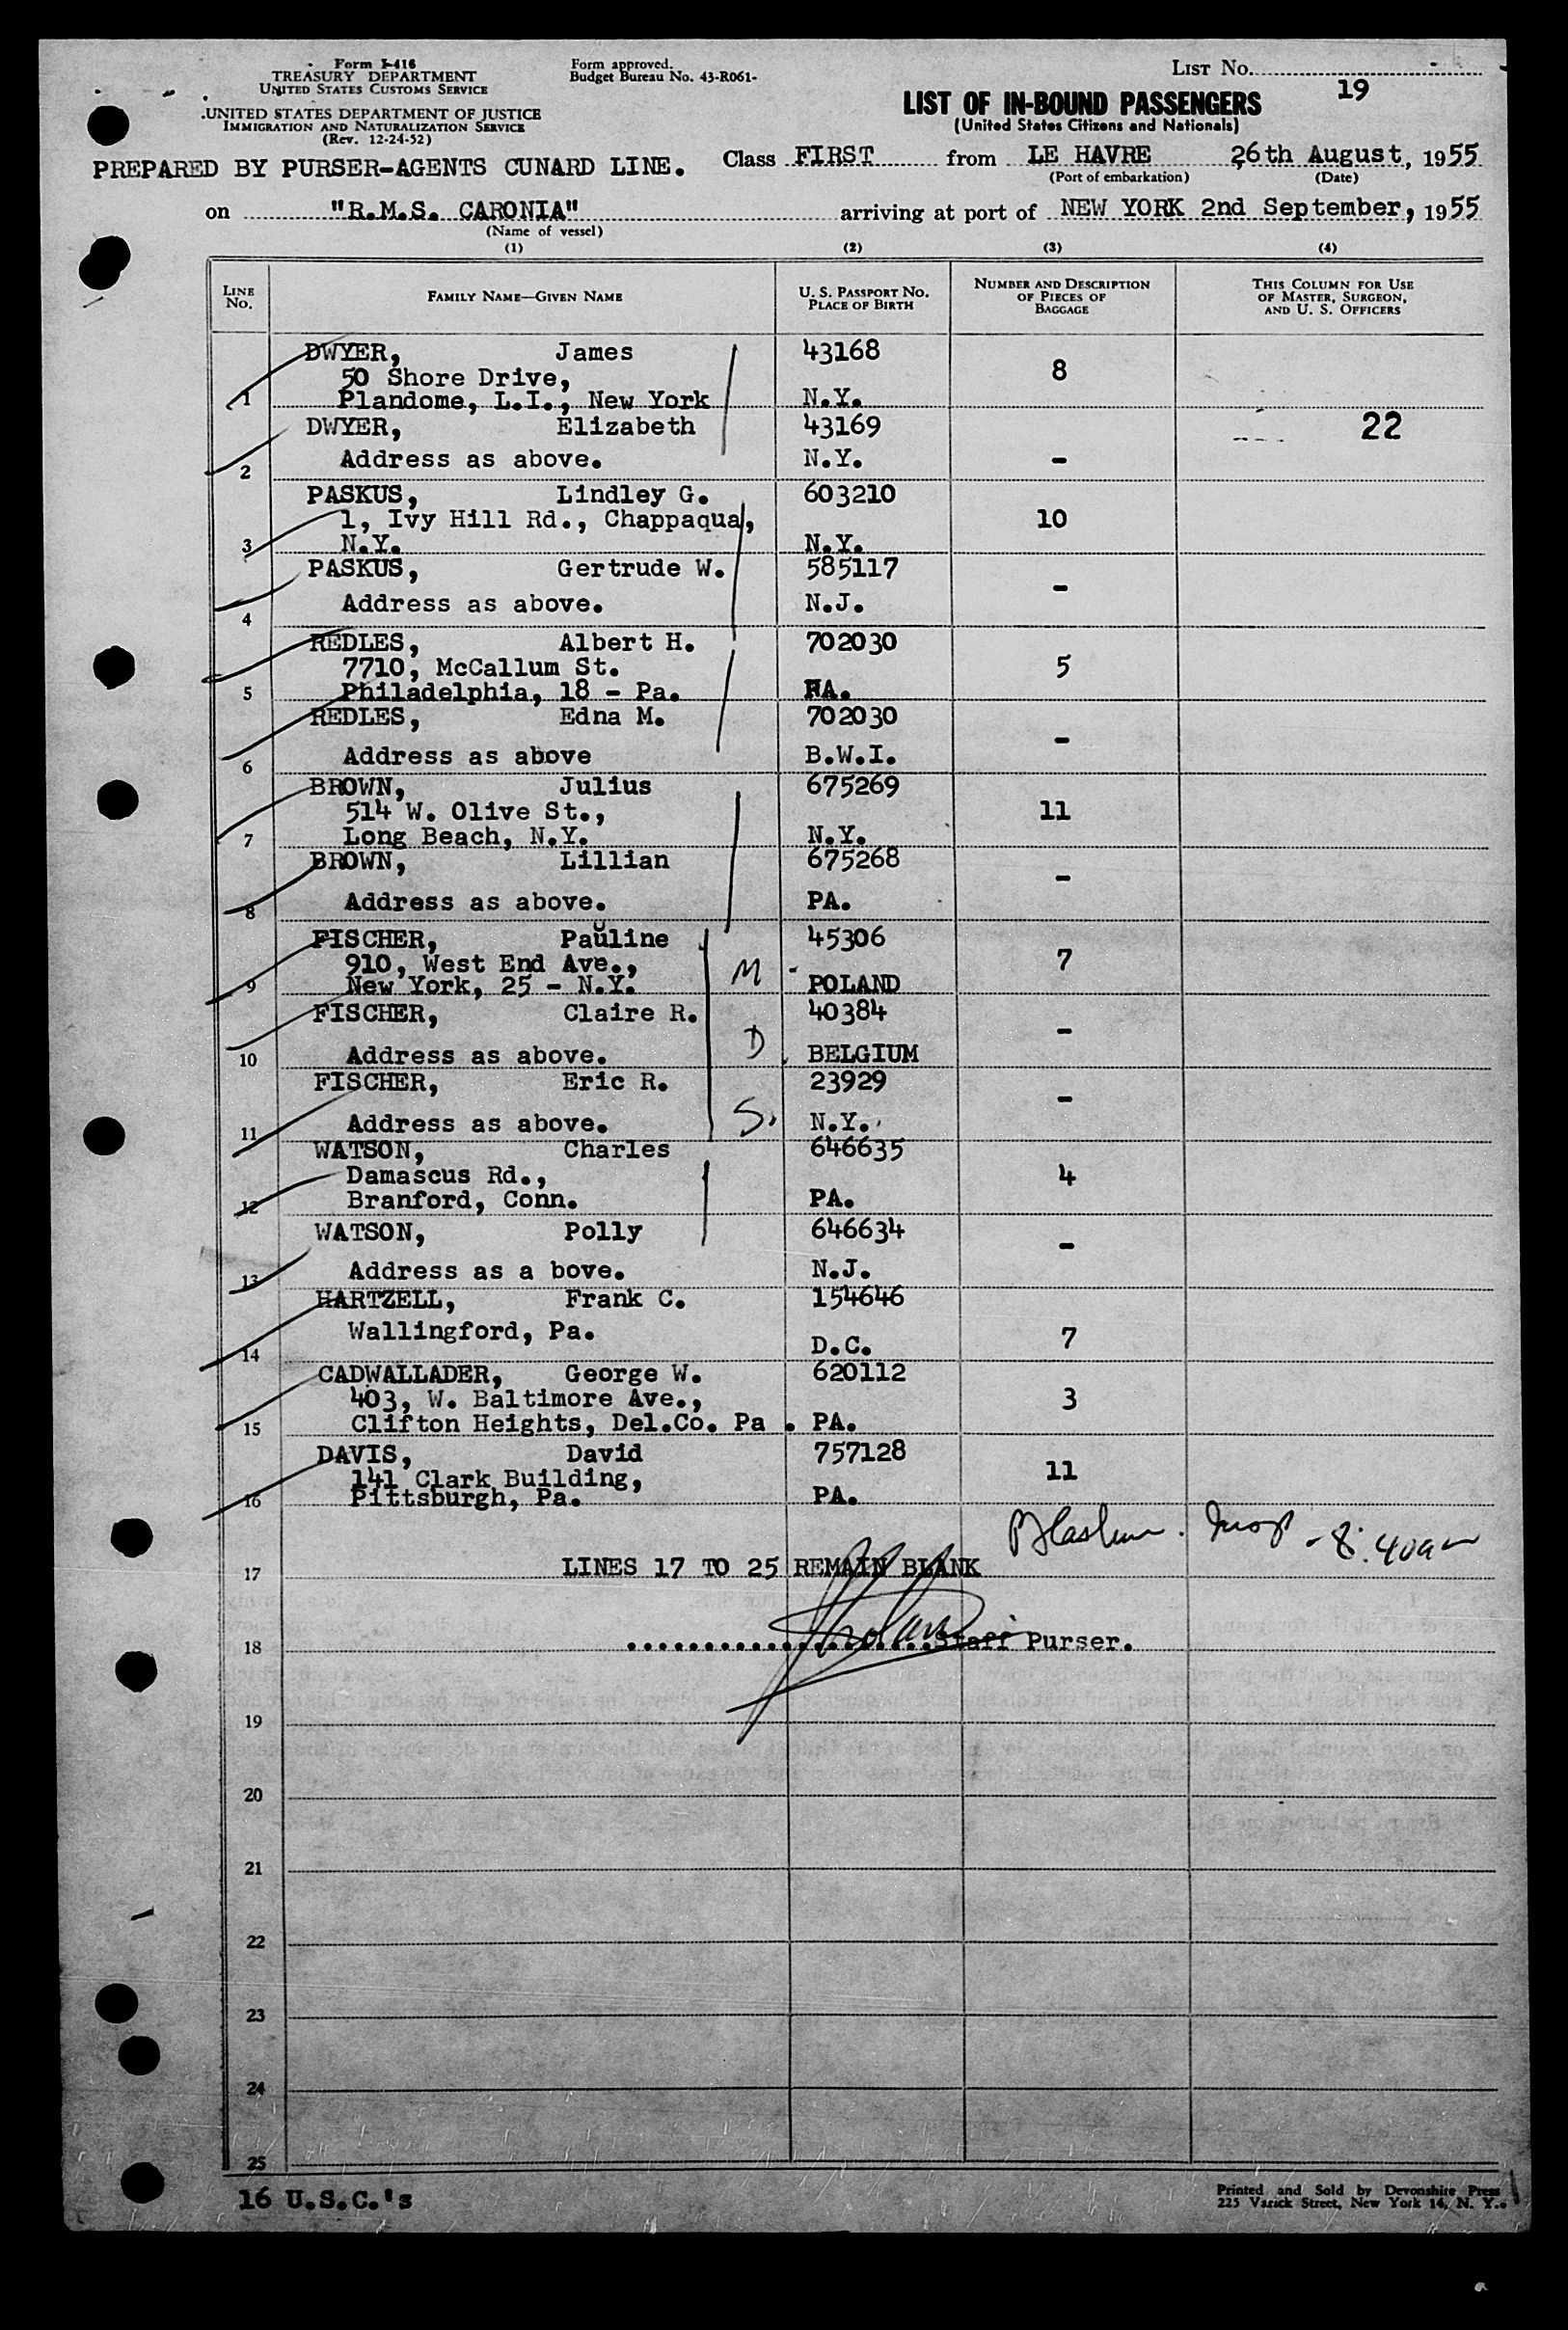 Form I-416
TREASURY DEPARTMENT
UNITED STATES CUSTOMS SERVICE
UNITED STATES DEPARTMENT OF JUSTICE
IMMIGRATION AND NATURALIZATION SERVICE
(Rev. 12-24-52)
Form approved.
Budget Bureau No. 43-R061-
LIST No.
19
LIST OF IN-BOUND PASSENGERS
(United States Citizens and Nationals)
PREPARED BY PURSER-AGENTS CUNARD LINE.
Class FIRST from LE HAVRE 26th August, 1955
(Port of embarkation) (Date)
on "R.M.S. CARONIA" arriving at port of NEW YORK 2nd September, 1955
(Name of vessel)
(1) (2) (3) (4)
LINE No. FAMILY NAME—GIVEN NAME U. S. PASSPORT No. PLACE OF BIRTH NUMBER AND DESCRIPTION OF PIECES OF BAGGAGE THIS COLUMN FOR USE OF MASTER, SURGEON, AND U. S. OFFICERS
DWYER, James 43168
50 Shore Drive, 8
1 Plandome, L.I., New York N.Y.
DWYER, Elizabeth 43169 22
2 Address as above. N.Y. -
PASKUS, Lindley G. 603210
1, Ivy Hill Rd., Chappaqua, 10
3 N.Y. N.Y.
PASKUS, Gertrude W. 585117 -
4 Address as above. N.J.
REDLES, Albert H. 702030
7710, McCallum St. 5
5 Philadelphia, 18 - Pa. PA.
REDLES, Edna M. 702030 -
6 Address as above B.W.I.
BROWN, Julius 675269
514 W. Olive St., 11
7 Long Beach, N.Y. N.Y.
BROWN, Lillian 675268 -
8 Address as above. PA.
FISCHER, Pauline 45306
910, West End Ave., M 7
9 New York, 25 - N.Y. POLAND
FISCHER, Claire R. 40384 -
10 Address as above. D. BELGIUM
FISCHER, Eric R. 23929 -
11 Address as above. S. N.Y.
WATSON, Charles 646635
Damascus Rd., 4
12 Branford, Conn. PA.
WATSON, Polly 646634 -
13 Address as a bove. N.J.
HARTZELL, Frank C. 154646
14 Wallingford, Pa. D.C. 7
CADWALLADER, George W. 620112
403, W. Baltimore Ave., 3
15 Clifton Heights, Del.Co. Pa . PA.
DAVIS, David 757128
141 Clark Building, 11
16 Pittsburgh, Pa. PA.
- 8:40am
17 LINES 17 TO 25 REMAIN BLANK
18 Staff Purser.
19
20
21
22
23
24
25
16 U.S.C.'s
Printed and Sold by Devonshire Press
225 Varick Street, New York 14, N. Y.